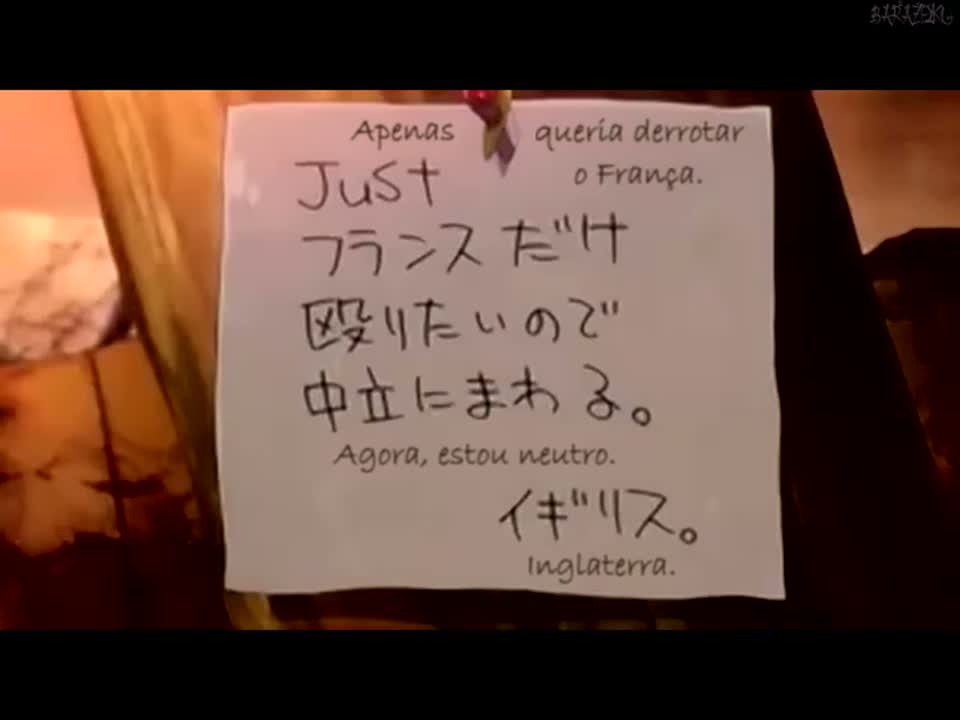 Apenas queria derrotar
o França.
Just
フランスだけ
殴りたいので
中立にまわる。
Agora, estou neutro.
イギリス。
Inglaterra.